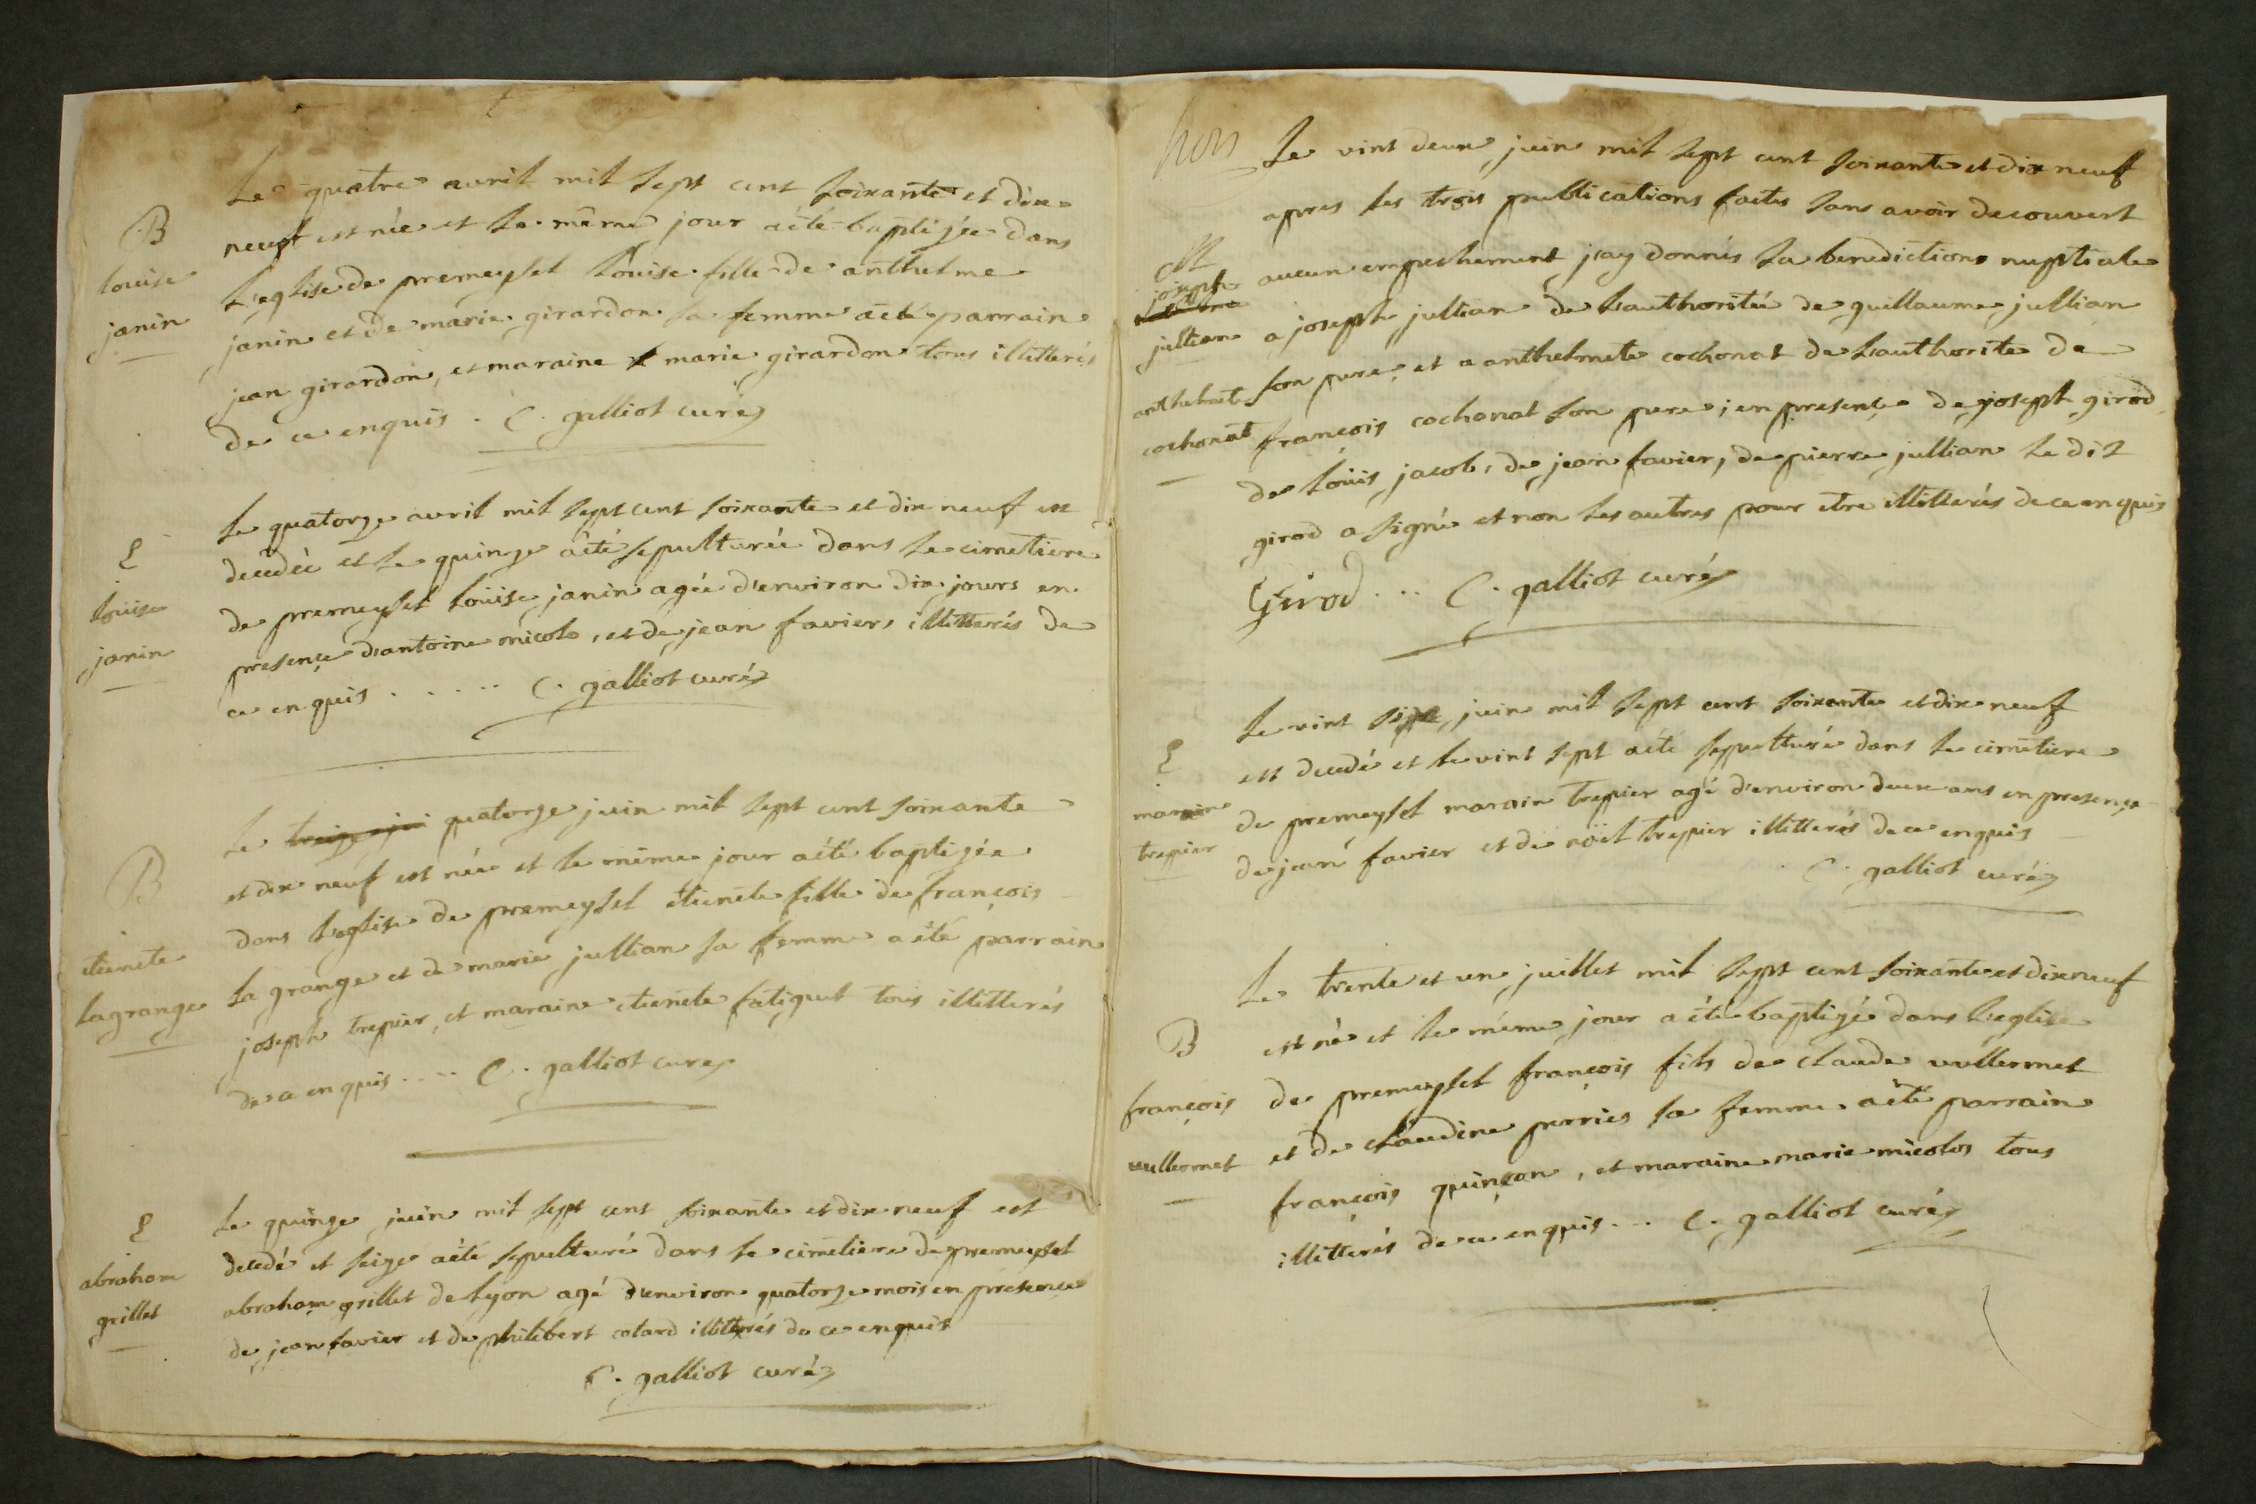 B
louise
janin
Le quatre avril mil sept cent soixante et dix-
neuf est née et le même jour a été baptizée dans
L'eglise de premeyzel Louise fille de anthelme
janin et de marie girardon sa femme a été parrain
jean girardon, et maraine marie girardon tous illitterés
de ce enquis . C. galliot curé
S
louise
janin
Le quatorze avril mil sept cent soixante et dix neuf est
decedée et le quinze a été sepulturée dans le cimetiere
de premeyzel Louise janin agée d'environ dix jours en
presençe d'antoine micolo, et de jean favier, illitterés de
ce enquis . . . . . C. galliot curé
B
etienete
lagrange
Le treize juin quatorze juin mil sept cent soixante
et dix neuf est née et le même jour a été baptizée
dans L'eglise de premeyzel etienete fille de françois
La grange et de marie jullian sa femme a été parrain
joseph trepier, et maraine etienete fatiguet tous illitterés
de ce enquis . . . . C. galliot curé
S
abraham
grillet
Le quinze juin mil sept cent soixante et dix neuf est
decedé et seize a été sepulturé dans le cimetiere de premeyzel
abraham grillet de Lyon agé d'environ quatorze mois en presençe
de jean favier et de philibert colard illitterés de ce enquis
C. galliot curé
hors
M
joseph
jullian
anthelmete
cochonat
Le vint deux juin mil sept cent soixante et dix neuf
apres les trois publications faites sans avoir decouvert
aucun empechement j'ay donnés la benediction nuptiale
a joseph jullian de L'authoritée de guillaume jullian
son pere, et a anthelmete cochonat de L'authorité de
françois cochonat son pere; en presençe de joseph girod
de Loüis jacob, de jean favier, de pierre jullian Le dit
girod a signé et non les autres pour etre illitterés de ce enquis
Girod . . . C. galliot curé
S
marin
trepier
Le vint juin mil sept cent soixante et dix neuf
est decedé et le vint sept a été sepulturé dans le cimetiere
de premeyzel marin trepier agé d'environ deux ans en presençe
de jean favier et de noël trepier illitterés de ce enquis
C. galliot curé
B
françois
vullermet
Le trente et un juillet mil sept cent soixante et dix neuf
est né et le même jour a été baptizé dans L'eglise
de premeyzel françois fils de claude vullermet
et de claudine perrier sa femme a été parrain
françois quinçon, et maraine marie micolos tous
illitterés de ce enquis . . . C. galliot curé